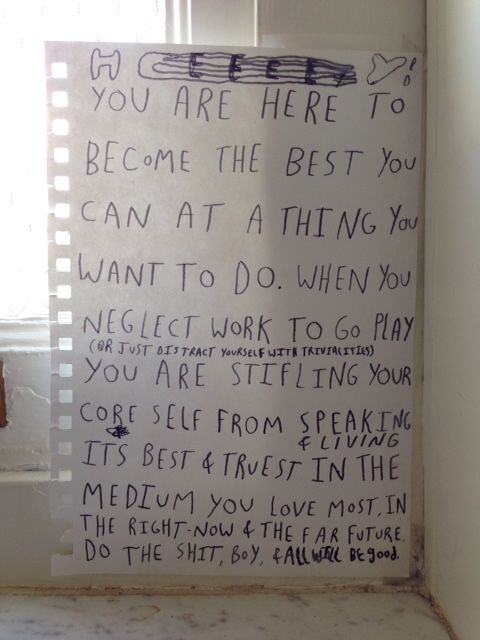 HEEEEY!
YOU ARE HERE TO
BECOME THE BEST YOU
CAN AT A THING YOU
WANT TO DO. WHEN YOU
NEGLECT WORK TO GO PLAY
(OR JUST DISTRACT YOURSELF WITH TRIVIALITIES)
YOU ARE STIFLING YOUR
CORE SELF FROM SPEAKING
& LIVING
ITS BEST & TRUEST IN THE
MEDIUM YOU LOVE MOST, IN
THE RIGHT-NOW & THE FAR FUTURE.
DO THE SHIT, BOY, & ALL WILL BE good.